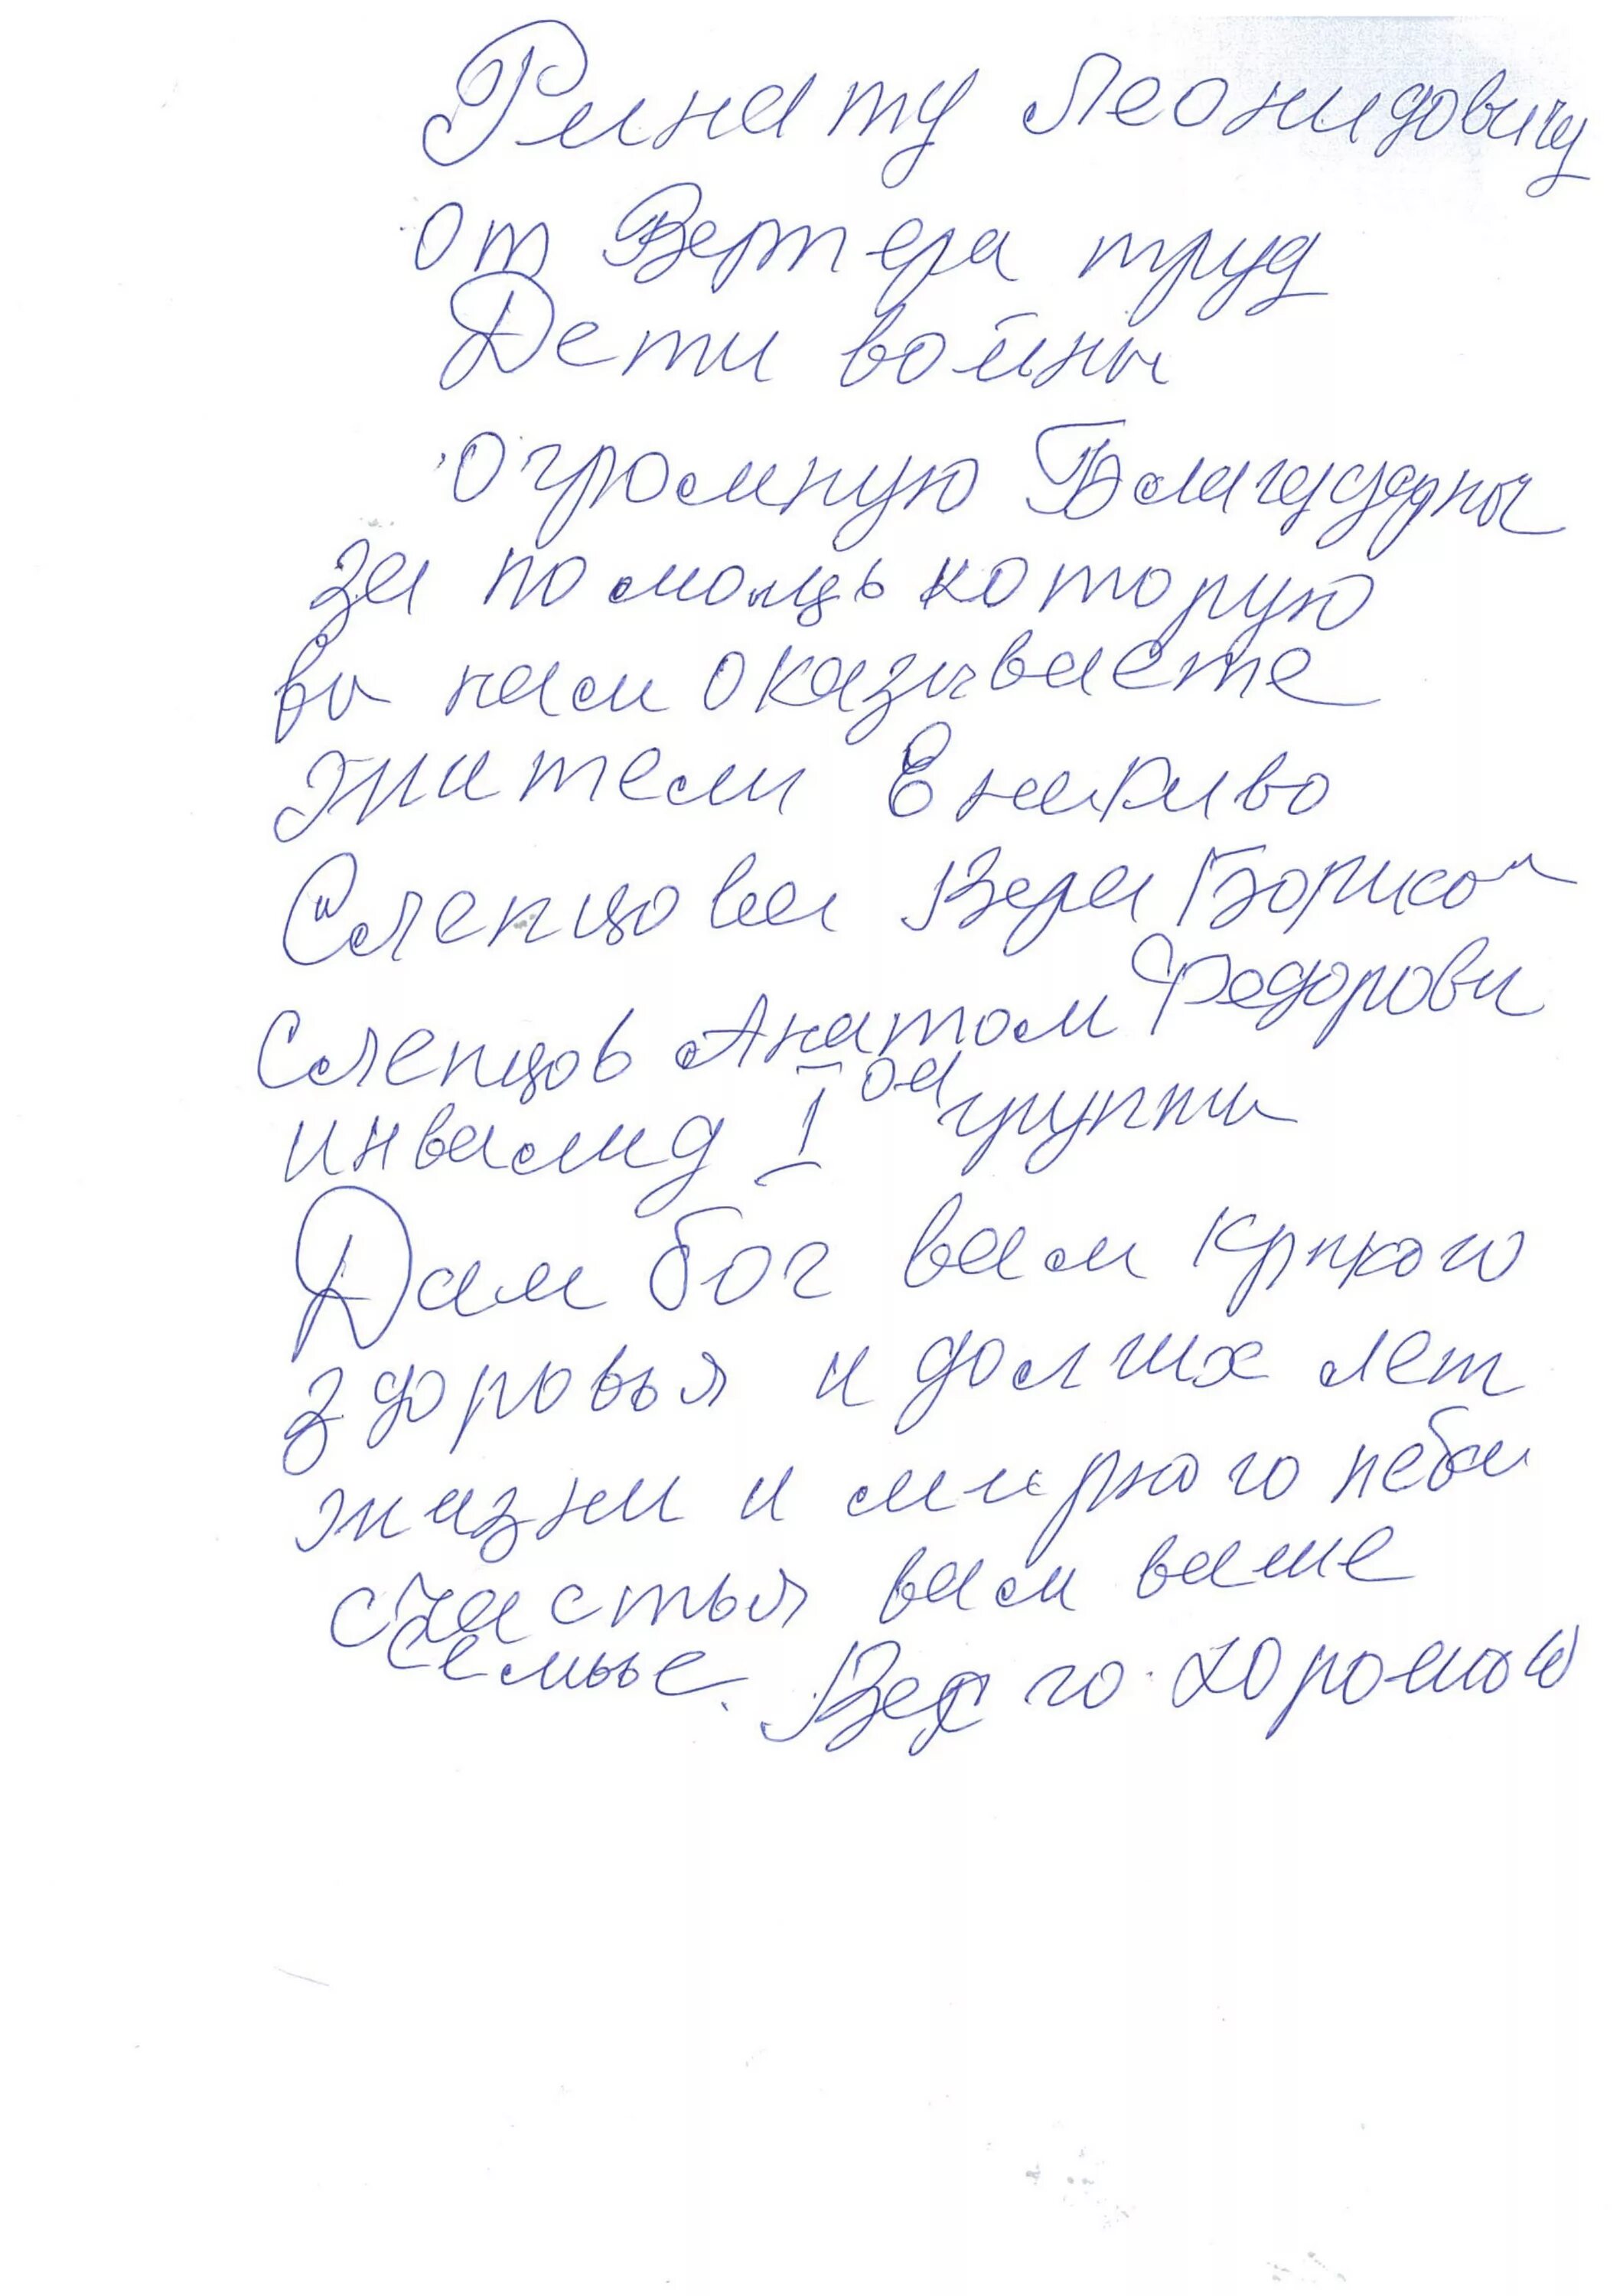 Ринату Леонидовичу
от Вертера труд
Дети войны
огромную
за помощь которую
вы нам оказываете
жители
Слепцова Вера
Федорови
Слепцов Анатол
инвалид I ой группы
Дам бог вам крпкого
здоровья и долгих лет
жизни и мирного неба
счастья вам ваше
семье. Всего хорошого